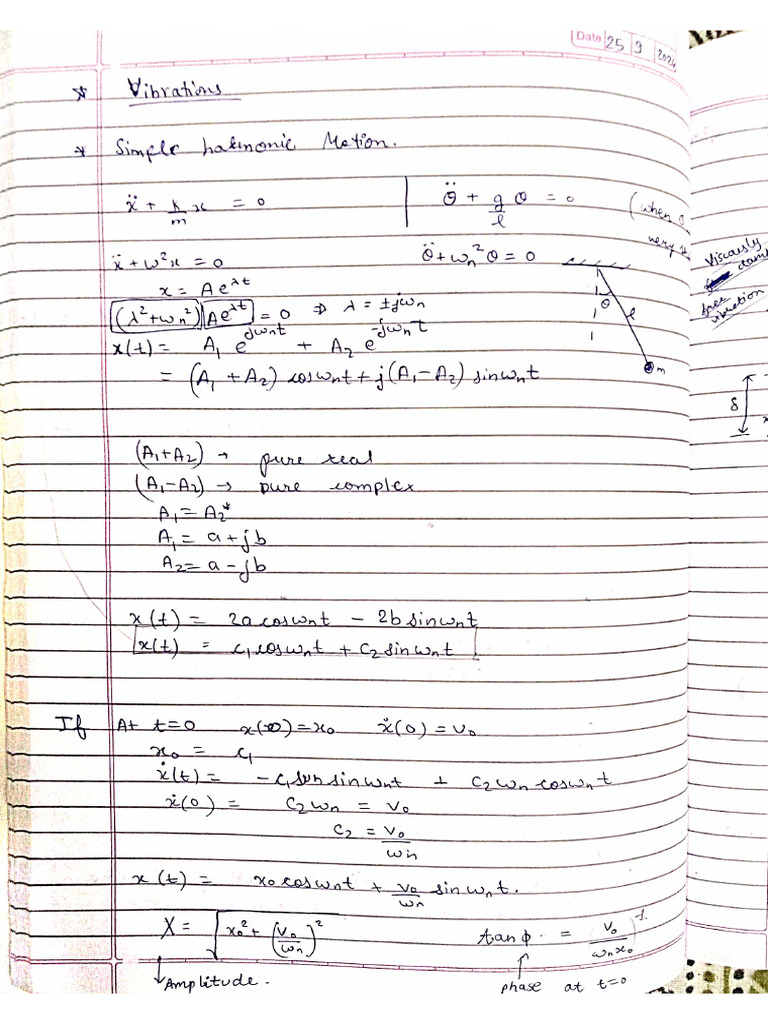 Date 25 9 2024
* Vibrations
* Simple harmonic Motion.
ẍ + k/m x = 0 | θ̈ + g/l θ = 0 (when θ
very
ẍ + ω²x = 0 θ̈ + ωn²θ = 0
x = A e^λt
(λ²+ωn²) A e^λt = 0 ⇒ λ = ±jωn
x(t) = A₁ e^jωnt + A₂ e^-jωnt
= (A₁ + A₂) cosωnt + j(A₁-A₂) sinωnt
θ l m
(A₁+A₂) → pure real
(A₁-A₂) → pure complex
A₁ = A₂*
A₁ = a + jb
A₂ = a - jb
x(t) = 2a cosωnt - 2b sinωnt
x(t) = c₁cosωnt + c₂sinωnt
If At t=0 x(0) = x₀ ẋ(0) = v₀
x₀ = c₁
ẋ(t) = -c₁ sinωnt + c₂ωn cosωnt
ẋ(0) = c₂ωn = v₀
c₂ = v₀/ωn
x(t) = x₀ cosωnt + v₀/ωn sinωnt.
X = √(x₀² + (v₀/ωn)²) tanφ = (v₀/ωnx₀)⁻¹
Amplitude. phase at t=0
Viscously
free
vibration
δ